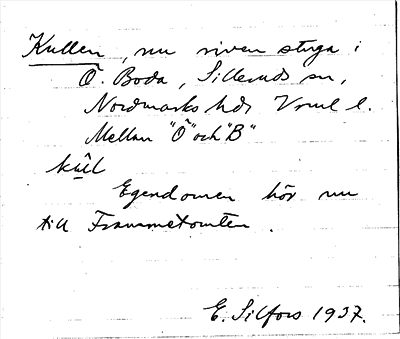 Kullen, nu riven stuga i
Ö. Boda, Silleruds sn,
Nordmarks hd, Vrml l.
Mellan "Ö" och "B"
kûl
Egendomen hör nu
till Frammetomten.
E. Silfors 1937.